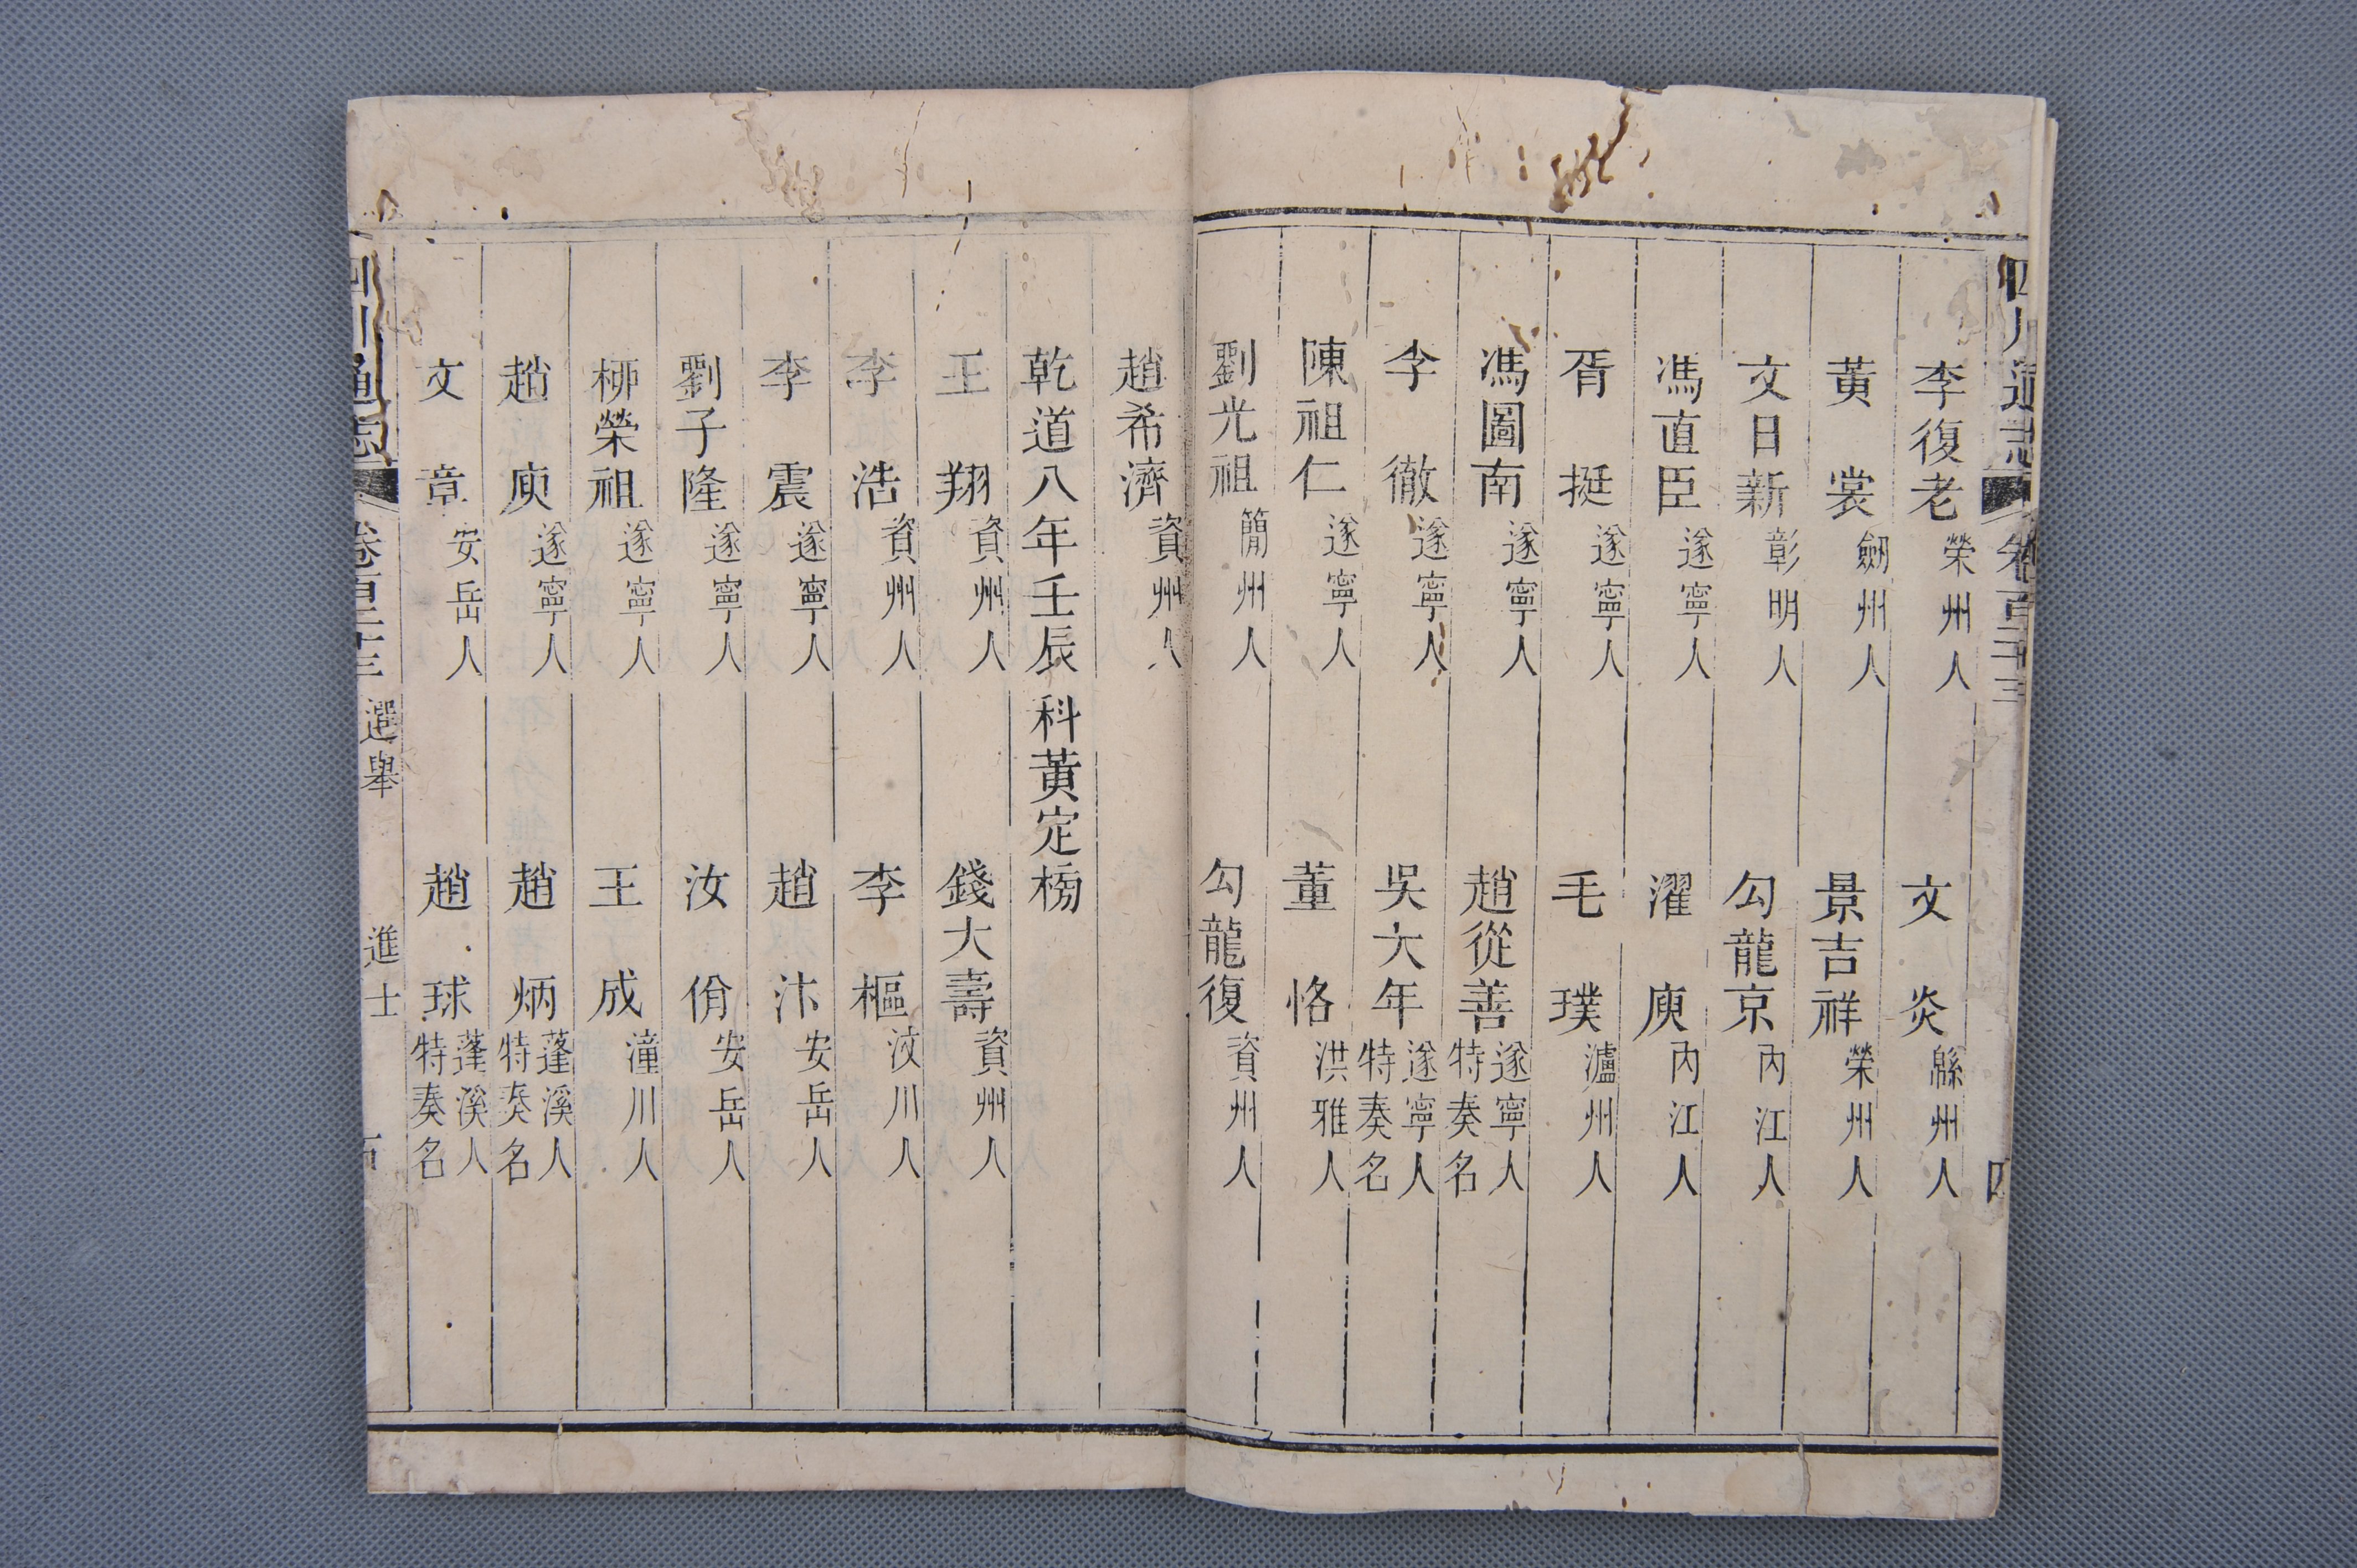 四川通志 卷百二十三 四
李復老 榮州人 文炎 緜州人
黃裳 劒州人 景吉祥 榮州人
文日新 彰明人 勾龍京 內江人
馮直臣 遂寧人 濯庾 內江人
胥挺 遂寧人 毛璞 瀘州人
馮圖南 遂寧人 趙從善 遂寧人特奏名
李徹 遂寧人 吳大年 遂寧人特奏名
陳祖仁 遂寧人 董恪 洪雅人
劉光祖 簡州人 勾龍復 資州人
趙希濟 資州人
乾道八年壬辰科黃定榜
王翔 資州人 錢大壽 資州人
李浩 資州人 李樞 汶川人
李震 遂寧人 趙汴 安岳人
劉子隆 遂寧人 汝俏 安岳人
桞榮祖 遂寧人 王成 潼川人
趙庾 遂寧人 趙炳 蓬溪人特奏名
文章 安岳人 趙球 蓬溪人特奏名
四川通志 卷百二十三 選舉 進士